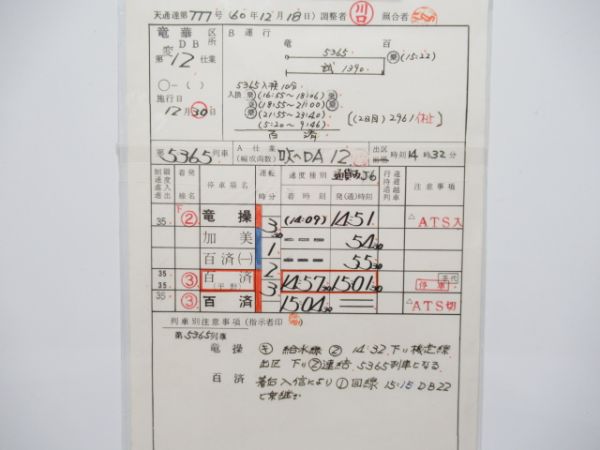 天通達第777号(60年12月18日)調整者 川口 照合者
竜華区所 B運行 竜 百
DB
変 5365 (15:22)
第12仕業 試1390
5365入換10分
入換(16:55~18:06)
(18:55~21:00)
施行日 (21:55~23:40)
12月30日 (5:20~9:46) [(2日目)2961休止]
百済
第5365列車 A仕業(編成両数) 吹へDA12 出区時刻14時32分
制限速度 進入 進出 着発線名 停車場名 運転時分 速度種別 通貨丙56 着時刻 発(通)時刻 行違 待避 追越 列車 注意事項
35. 下② 竜操 3 30 (14:09) 14:51 △ATS入
加美 1 === 54 30
百済(一) 2 === 55 30
35. 35. ③ 百済(下り) 3 14:57 30 15:01 30 停車
35. ③ 百済 15:04 30 == △ATS切
列車別注意事項(指示者印)
第5365列車
竜操 給水線② 14:32 下り検定線
出区 下り②連結 5365列車となる
百済 着后入信により①回線 15:15 DB22
と乗継ぎ